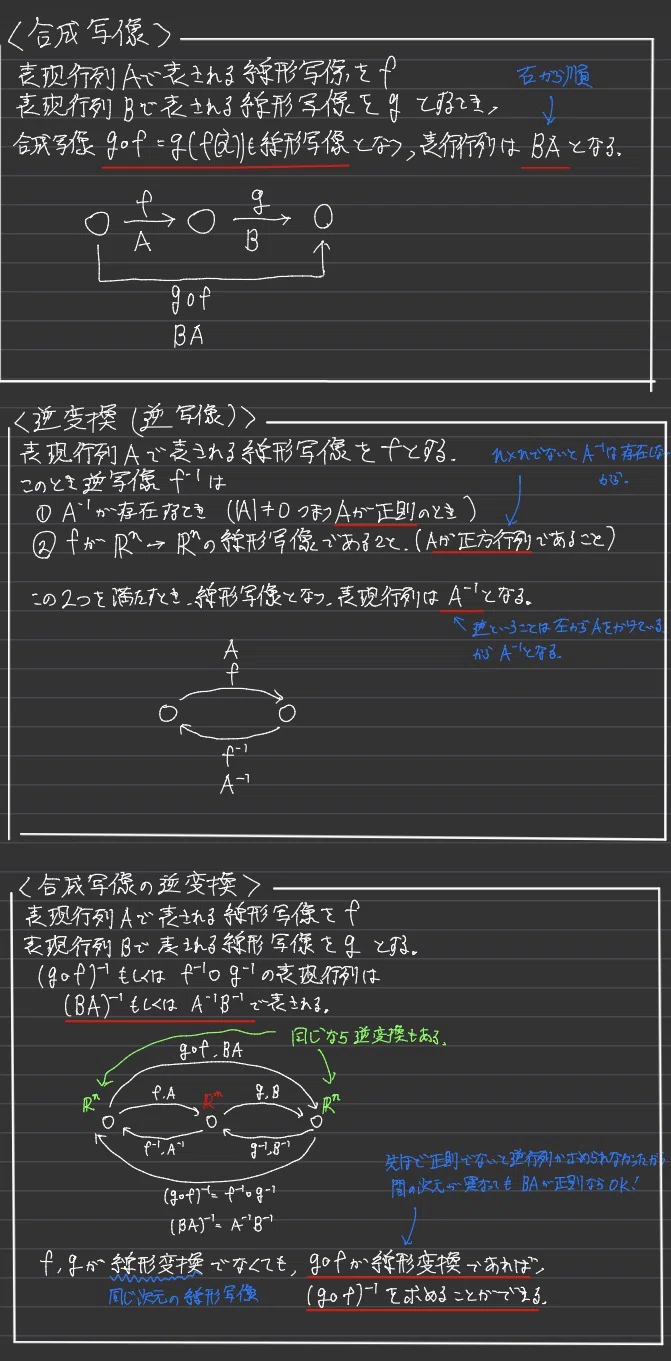 <合成写像>
表現行列Aで表される線形写像をf
右から順
表現行列Bで表される線形写像をgとするとき、
合成写像 g∘f = g(f(x))も線形写像となり、表行行列は BA となる.
f g
A B
g∘f
BA
<逆変換(逆写像)>
表現行列Aで表される線形写像をfとする.
n×nでないとA⁻¹は存在しないから.
このとき逆写像 f⁻¹は
① A⁻¹が存在するとき (|A|≠0 つまりAが正則のとき)
② fが ℝⁿ→ℝⁿの線形写像であること. (Aが正方行列であること)
この2つを満たすとき、線形写像となり、表現行列は A⁻¹となる.
逆ということは左からAをかけている
から A⁻¹となる.
A
f
f⁻¹
A⁻¹
<合成写像の逆変換>
表現行列Aで表される線形写像をf
表現行列Bで表される線形写像をgとする.
(g∘f)⁻¹もしくは f⁻¹∘g⁻¹の表現行列は
(BA)⁻¹もしくは A⁻¹B⁻¹で表される.
同じなら逆変換もある.
g∘f, BA
ℝⁿ f, A ℝᵐ g, B ℝⁿ
f⁻¹, A⁻¹ g⁻¹, B⁻¹
(g∘f)⁻¹= f⁻¹∘g⁻¹
(BA)⁻¹= A⁻¹B⁻¹
先ほど正則でないと逆行列が求められなかったから
間の次元が異なっても BAが正則ならOK!
f, gが線形変換でなくても, g∘fが線形変換であれば,
同じ次元の線形写像
(g∘f)⁻¹を求めることができる.